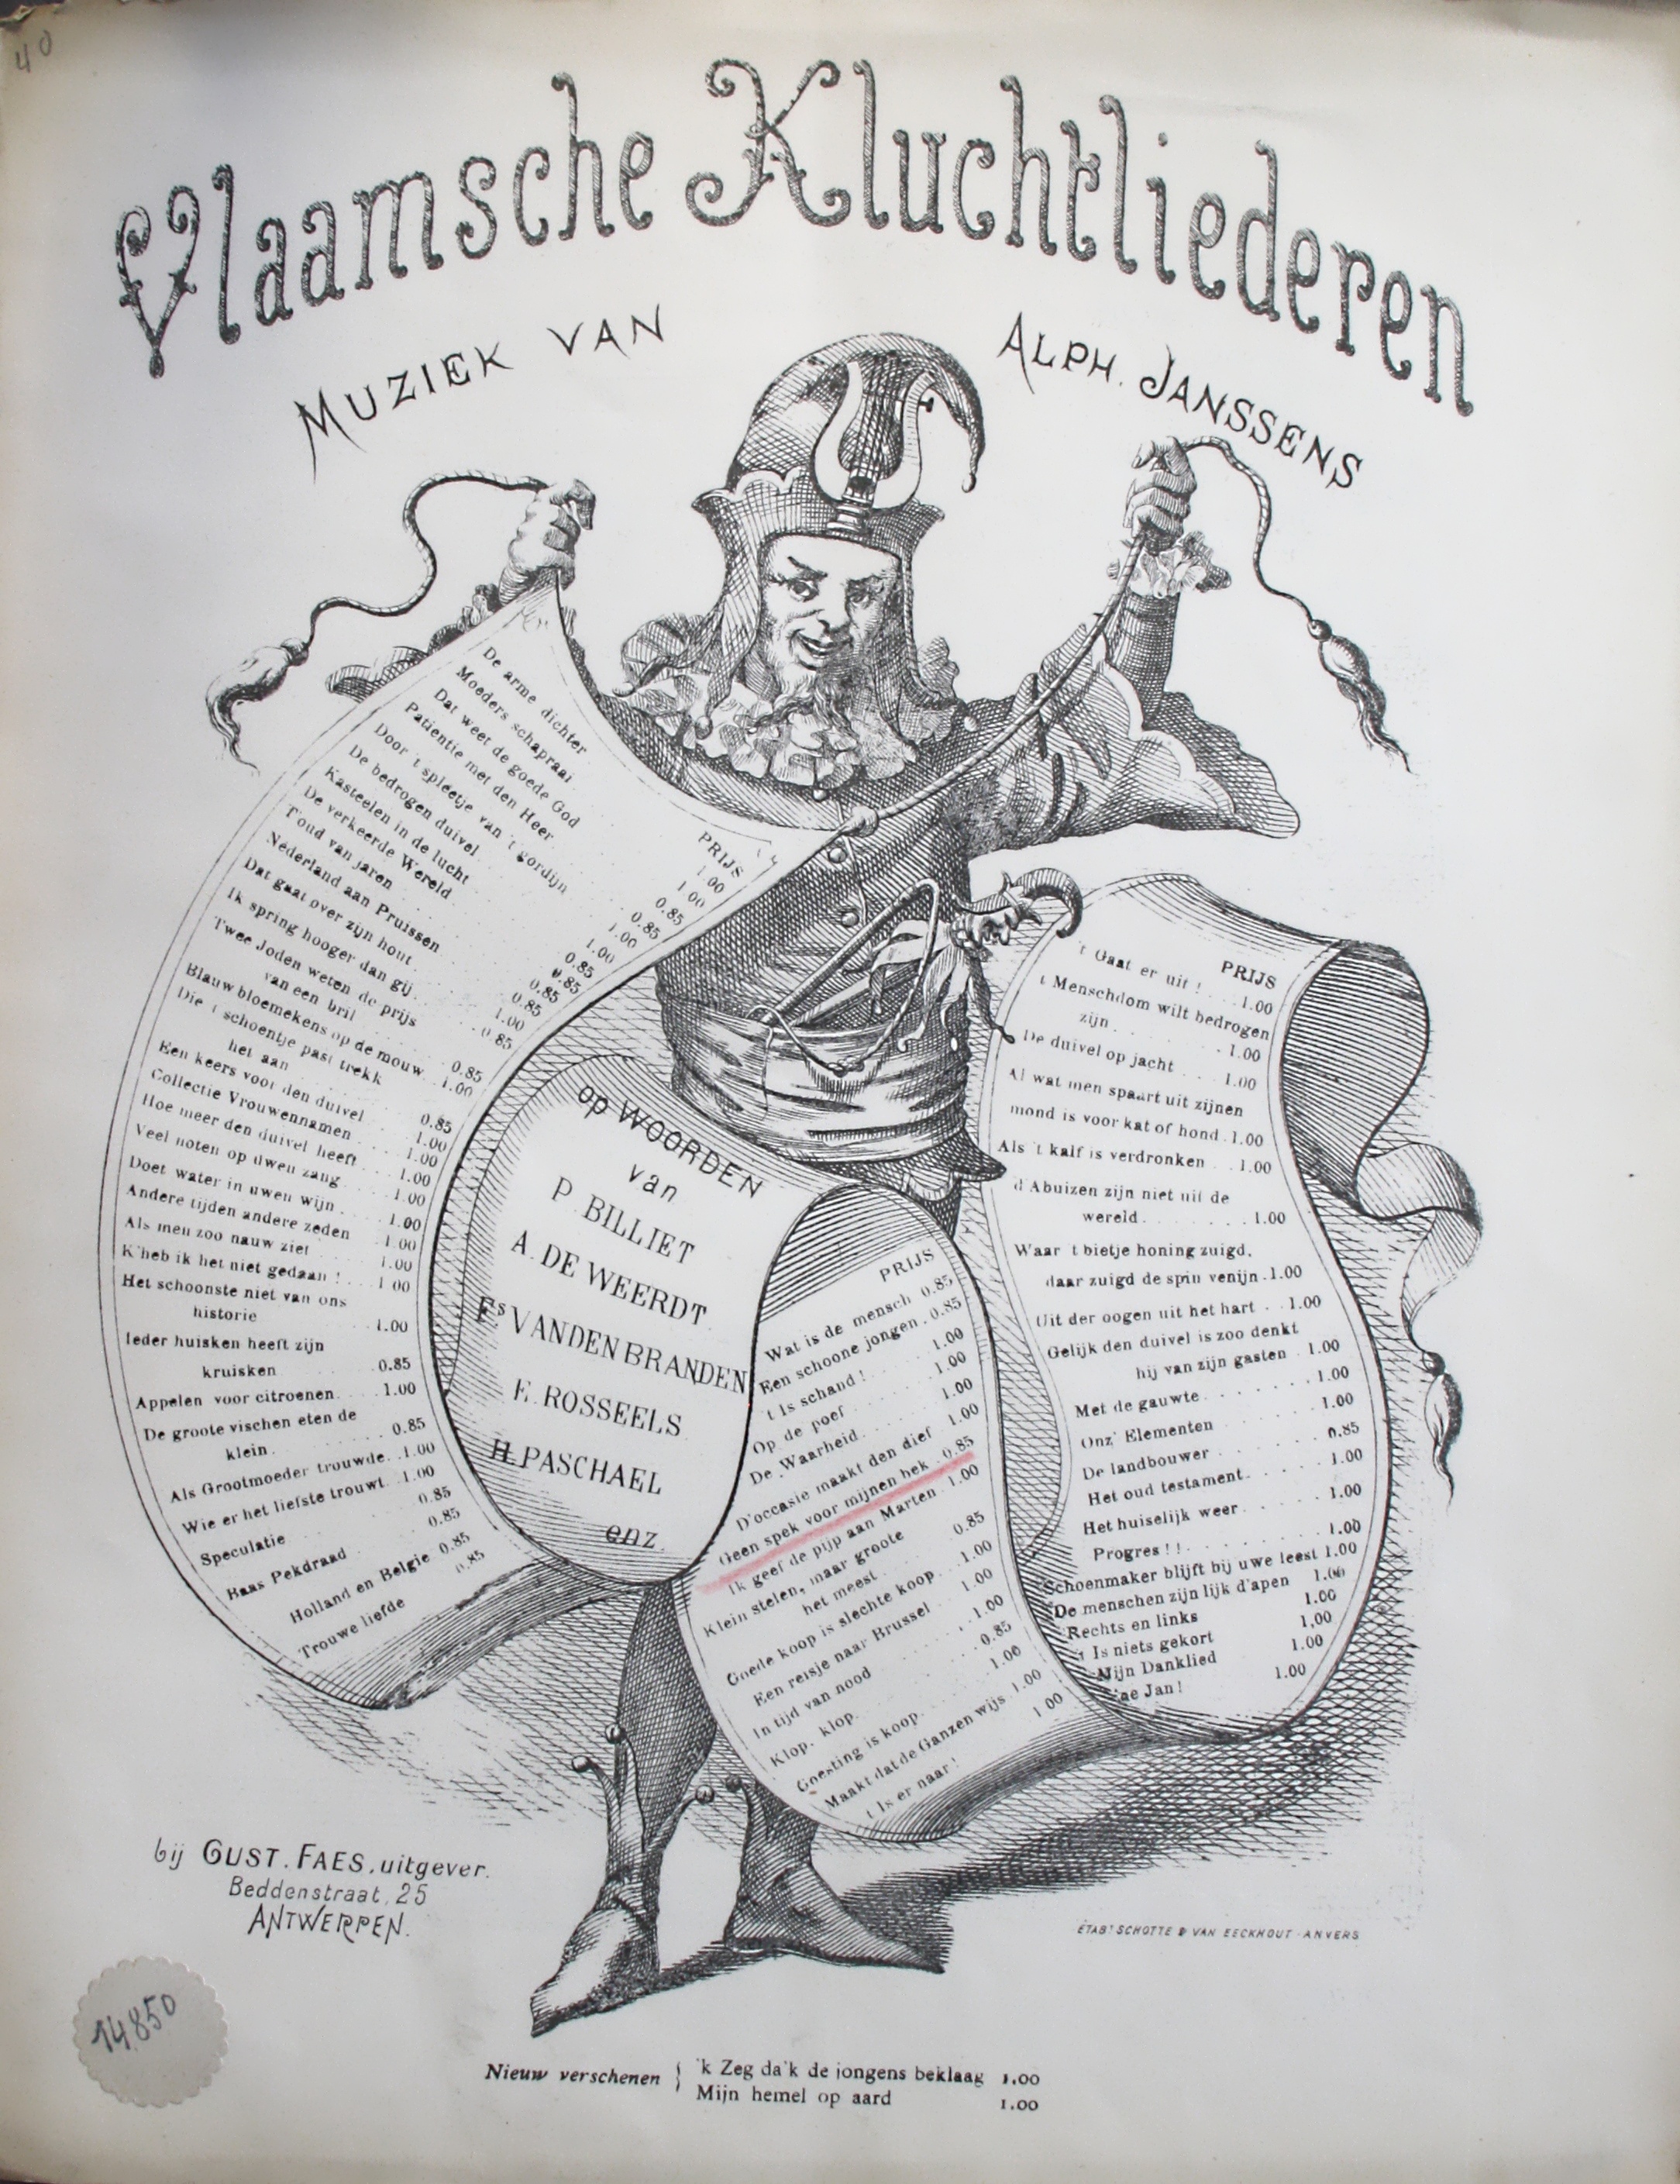 40
Vlaamsche Kluchtliederen
MUZIEK VAN ALPH. JANSSENS
PRIJS
De arme dichter 1.00
Moeders schapraai 1.00
Dat weet de goede God 0.85
Patientie met den Heer 0.85
Door 't spleetje van 't gordijn 1.00
De bedrogen duivel 1.00
Kasteelen in de lucht 0.85
De verkeerde Wereld 0.85
T'oud van jaren 0.85
Nederland aan Pruissen 0.85
Dat gaat over zijn hout 1.00
Ik spring hooger dan gij 0.85
Twee Joden weten de prijs
van een bril 0.85
Blauw bloemekens op de mouw 1.00
Die 't schoentje past trekk
het aan 0.85
Een keers voor den duivel 1.00
Collectie Vrouwennamen 1.00
Hoe meer den duivel heeft 1.00
Veel noten op uwen zang 1.00
Doet water in uwen wijn 1.00
Andere tijden andere zeden 1.00
Als men zoo nauw ziet 1.00
K'heb ik het niet gedaan! 1 00
Het schoonste niet van ons
historie 1.00
Ieder huisken heeft zijn
kruisken 0.85
Appelen voor citroenen 1.00
De groote vischen eten de
klein 0.85
Als Grootmoeder trouwde 1.00
Wie er het liefste trouwt 1.00
Speculatie 0.85
Baas Pekdraad 0.85
Holland en Belgie 0.85
Trouwe liefde 0.85
op WOORDEN
van
P. BILLIET
A. DE WEERDT
Fs VANDENBRANDEN
E. ROSSEELS
H. PASCHAEL
enz.
PRIJS
Wat is de mensch 0.85
Een schoone jongen 0.85
't Is schand! 1.00
Op de poef 1.00
De Waarheid 1.00
D'occasie maakt den dief 1.00
Geen spek voor mijnen bek 0.85
Ik geef de pijp aan Marten 1.00
Klein stelen, maar groote
het meest 0.85
Goede koop is slechte koop 1.00
Een reisje naar Brussel 1.00
In tijd van nood 1.00
Klop, klop 0.85
Goesting is koop 1.00
Maakt dat de Ganzen wijs 1.00
t Is er naar! 1 00
PRIJS
't Gaat er uit! 1.00
t Menschdom wilt bedrogen
zijn 1.00
De duivel op jacht 1.00
Al wat men spaart uit zijnen
mond is voor kat of hond 1.00
Als 't kalf is verdronken 1.00
d'Abuizen zijn niet uit de
wereld 1.00
Waar t bietje honing zuigd,
daar zuigd de spin venijn 1.00
Uit der oogen uit het hart 1.00
Gelijk den duivel is zoo denkt
hij van zijn gasten 1.00
Met de gauwte 1.00
Onz' Elementen 1.00
De landbouwer 0.85
Het oud testament 1.00
Het huiselijk weer 1.00
Progres!! 1.00
Schoenmaker blijft bij uwe leest 1.00
De menschen zijn lijk d'apen 1.00
Rechts en links 1.00
't Is niets gekort 1,00
Mijn Danklied 1.00
ne Jan! 1.00
bij GUST. FAES, uitgever.
Beddenstraat, 25
ANTWERPEN.
ETABT SCHOTTE & VAN EECKHOUT - ANVERS
14,850
Nieuw verschenen { 'k Zeg da'k de jongens beklaag 1.00
Mijn hemel op aard 1.00